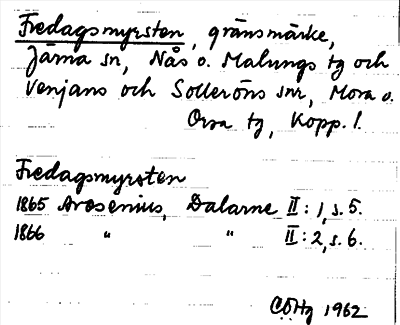 Fredagsmyrsten, gränsmärke,
Järna sn, Nås o. Malungs tg och
Venjans och Solleröns snr, Mora o.
Orsa tg, Kopp. l.
Fredagsmyrsten
1865 Arosenius, Dalarne II:1, s. 5.
1866 " " II:2, s. 6.
CÖHg 1962